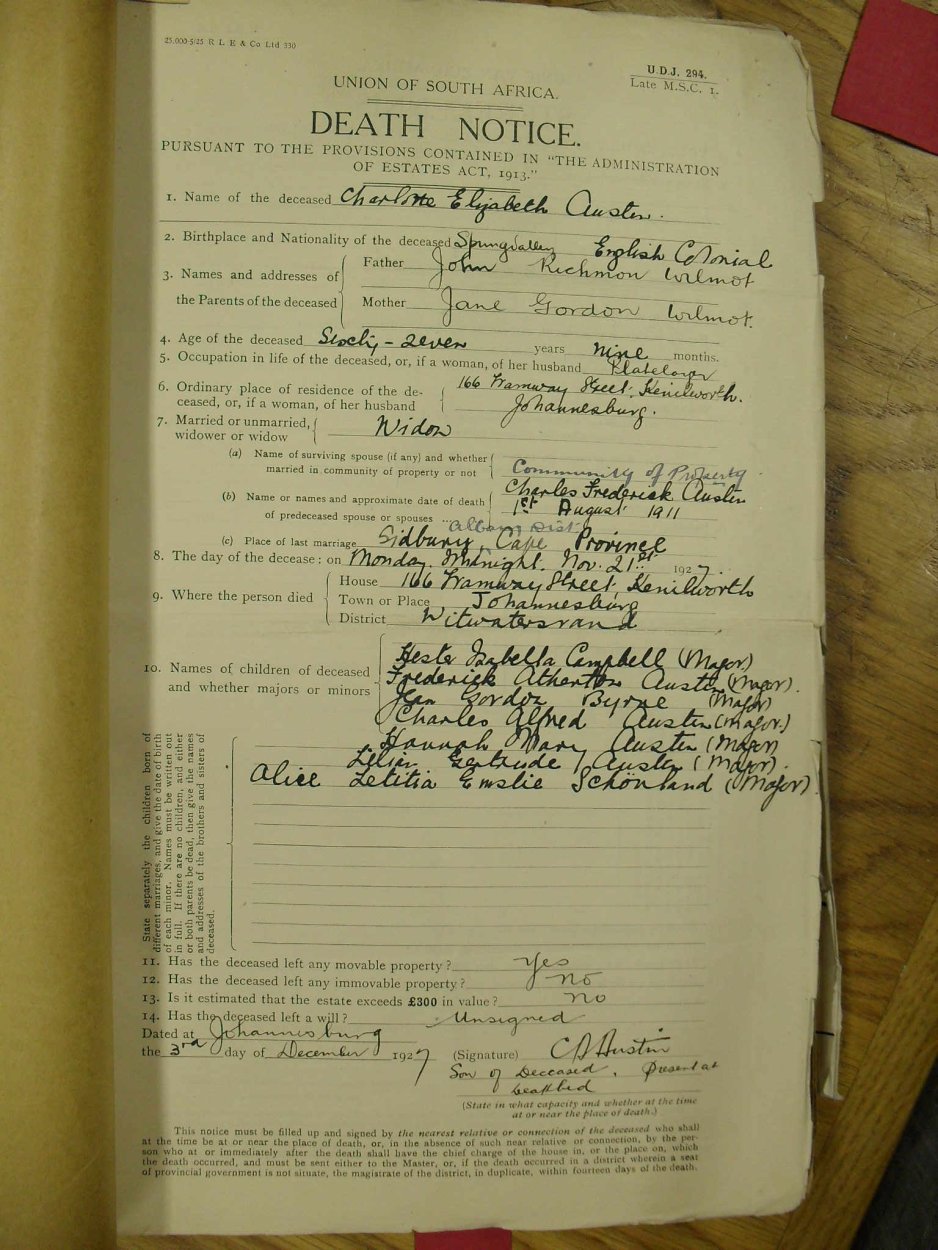 25,000-5/25 R L E & Co Ltd 330
U.D.J. 294.
Late M.S.C. 1.
UNION OF SOUTH AFRICA.
DEATH NOTICE.
PURSUANT TO THE PROVISIONS CONTAINED IN "THE ADMINISTRATION
OF ESTATES ACT, 1913."
1. Name of the deceased Charlotte Elizabeth Austin.
2. Birthplace and Nationality of the deceased Springvalley English Colonial
3. Names and addresses of the Parents of the deceased
Father John Richmon Wilmot
Mother Jane Gordon Wilmot.
4. Age of the deceased Sixty-seven years nine months.
5. Occupation in life of the deceased, or, if a woman, of her husband Platelayer
6. Ordinary place of residence of the de-
ceased, or, if a woman, of her husband
166 Tramway Street, Kenilworth.
Johannesburg.
7. Married or unmarried,
widower or widow
Widow
(a) Name of surviving spouse (if any) and whether
married in community of property or not
Community of Property
(b) Name or names and approximate date of death
of predeceased spouse or spouses ..
Charles Frederick Austin
1st August 1911
Albany Dist
(c) Place of last marriage Sidbury, Cape Province
8. The day of the decease: on Monday. Midnight. Nov. 21st 1927.
9. Where the person died
House 166 Tramway Street, Kenilworth
Town or Place Johannesburg
District Witwatersrand
10. Names of children of deceased
and whether majors or minors
Hester Isabella Campbell (Major)
Frederick Atherton Austin (Major).
Jean Gordon Byrne (Major)
Charles Alfred Austin (Major.)
Hannah Mary Austin (Major)
Lilian Gertrude Austin (Major).
Alice Letitia Emslie Schonland (Major)
State separately the children born of
different marriages, and give the date of birth
of each minor. Names must be written out
in full. If there are no children, and either
or both parents be dead, then give the names
and addresses of the brothers and sisters of
deceased.
11. Has the deceased left any movable property? Yes
12. Has the deceased left any immovable property? no
13. Is it estimated that the estate exceeds £300 in value? no
14. Has the deceased left a will? Unsigned
Dated at Johannesburg
the 3rd day of December 1927
(Signature) C A Austin
Son of Deceased. Present at
deathbed
(State in what capacity and whether at the time
at or near the place of death.)
This notice must be filled up and signed by the nearest relative or connection of the deceased who shall
at the time be at or near the place of death, or, in the absence of such near relative or connection, by the per-
son who at or immediately after the death shall have the chief charge of the house in, or the place on, which
the death occurred, and must be sent either to the Master, or, if the death occurred in a district wherein a seat
of provincial government is not situate, the magistrate of the district, in duplicate, within fourteen days of the death.